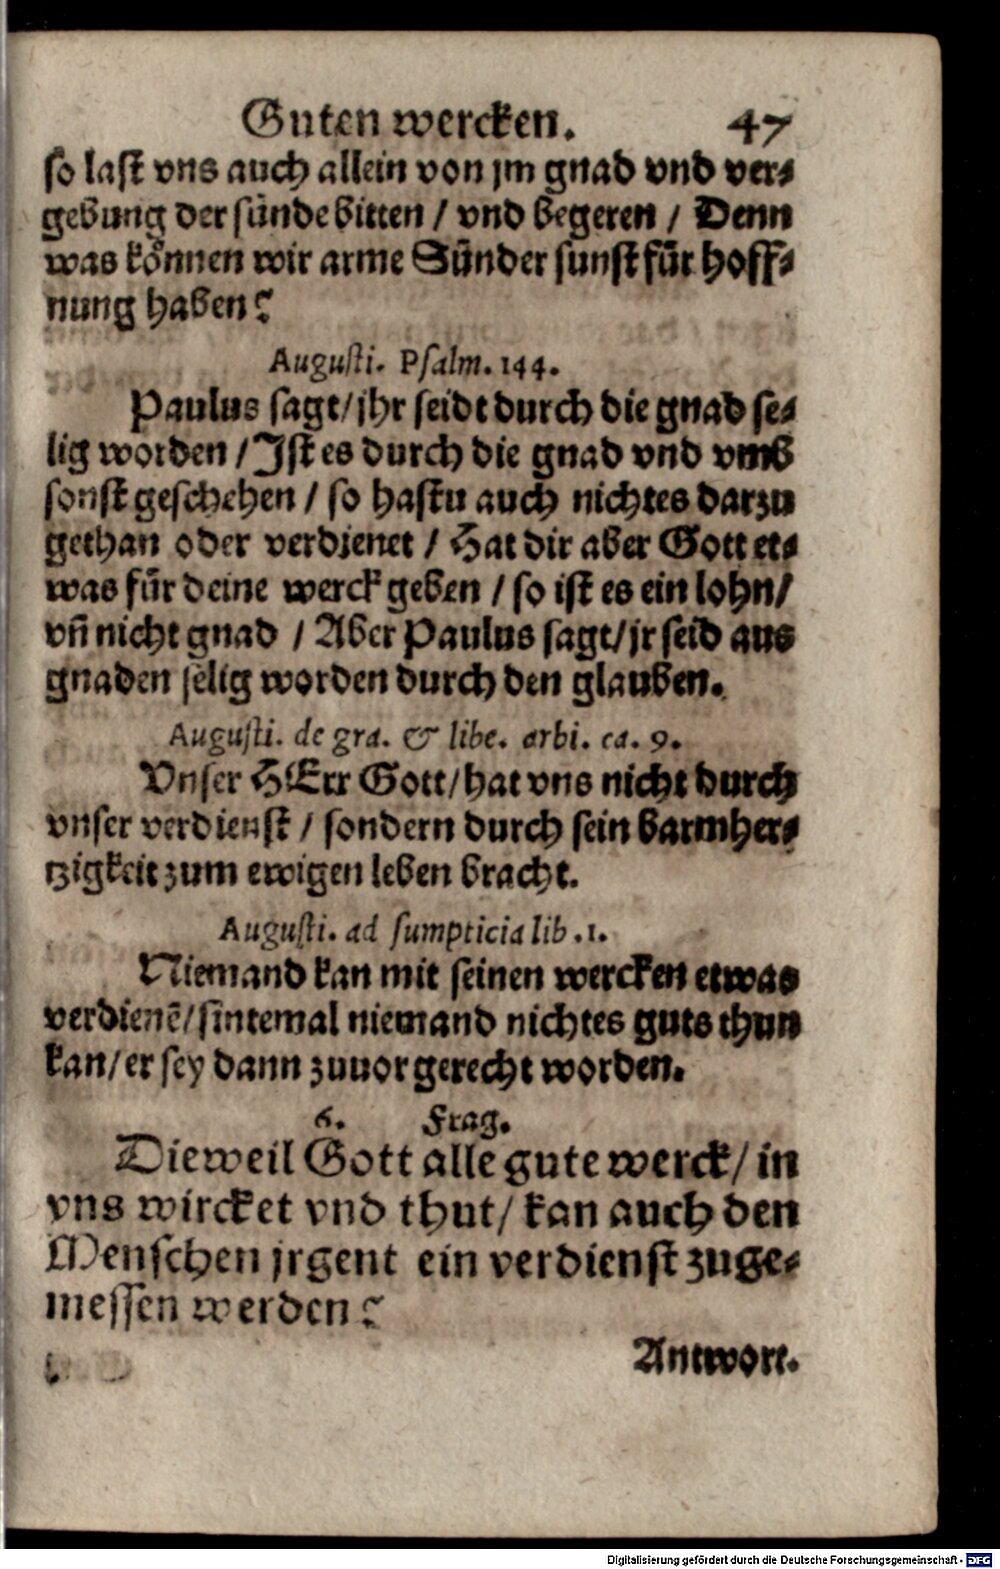 Guten wercken. 47
so last vns auch allein von jm gnad vnd ver-
gebung der sünde bitten / vnd begeren / Denn
was können wir arme Sünder sunst für hoff-
nung haben?
Augusti. Psalm. 144.
Paulus sagt/jhr seidt durch die gnad se-
lig worden / Ist es durch die gnad vnd vmb
sonst geschehen / so hastu auch nichtes darzu
gethan oder verdienet / Hat dir aber Gott et-
was für deine werck geben / so ist es ein lohn/
vñ nicht gnad / Aber Paulus sagt/jr seid aus
gnaden selig worden durch den glauben.
Augusti. de gra. & libe. arbi. ca. 9.
Vnser HErr Gott/hat vns nicht durch
vnser verdienst / sondern durch sein barmher-
tzigkeit zum ewigen leben bracht.
Augusti. ad sumpticia lib .1.
Niemand kan mit seinen wercken etwas
verdienẽ/sintemal niemand nichtes guts thun
kan/er sey dann zuuor gerecht worden.
6. Frag.
Dieweil Gott alle gute werck/in
vns wircket vnd thut/kan auch den
Menschen jrgent ein verdienst zuge-
messen werden?
Antwort.
Digitalisierung gefördert durch die Deutsche Forschungsgemeinschaft - DFG